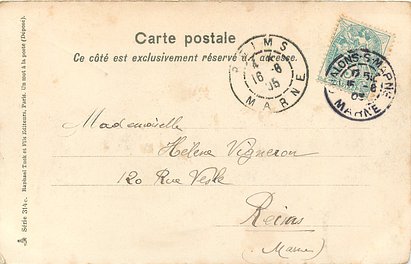 Carte postale
Ce côté est exclusivement réservé à l'adresse.
REIMS
4
16-8
05
MARNE
CHALONS-S-MARNE
15-8
05
MARNE
Mademoiselle
Hélène Vigneron
120 Rue Vesle
Reims
(Marne)
Série 314c. Raphael Tuck et Fils Editeurs, Paris. Un mot à la poste (Déposé).